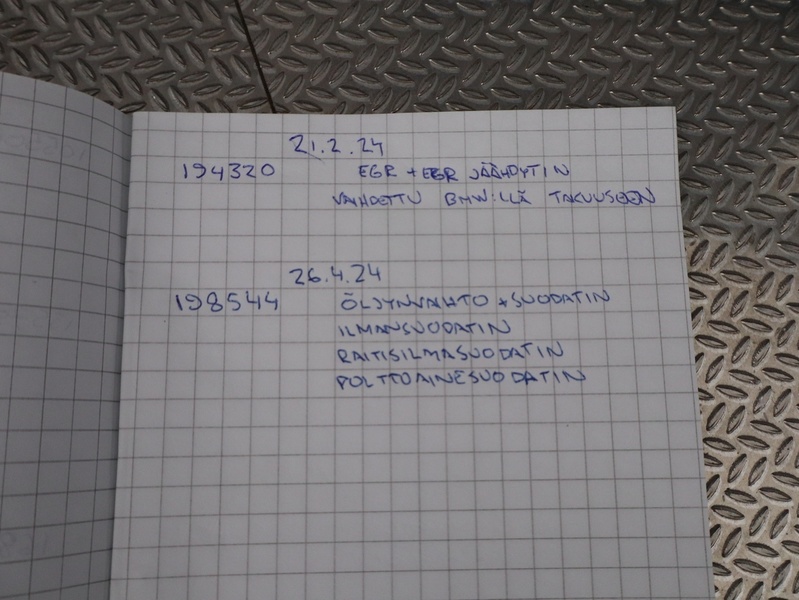 21.2.24
194320 EGR + EGR JÄÄHDYTIN
VAIHDETTU BMW:LLÄ TAKUUSEEN
26.4.24
198544 ÖLJYNVAIHTO + SUODATIN
ILMANSUODATIN
RAITISILMASUODATIN
POLTTOAINESUODATIN